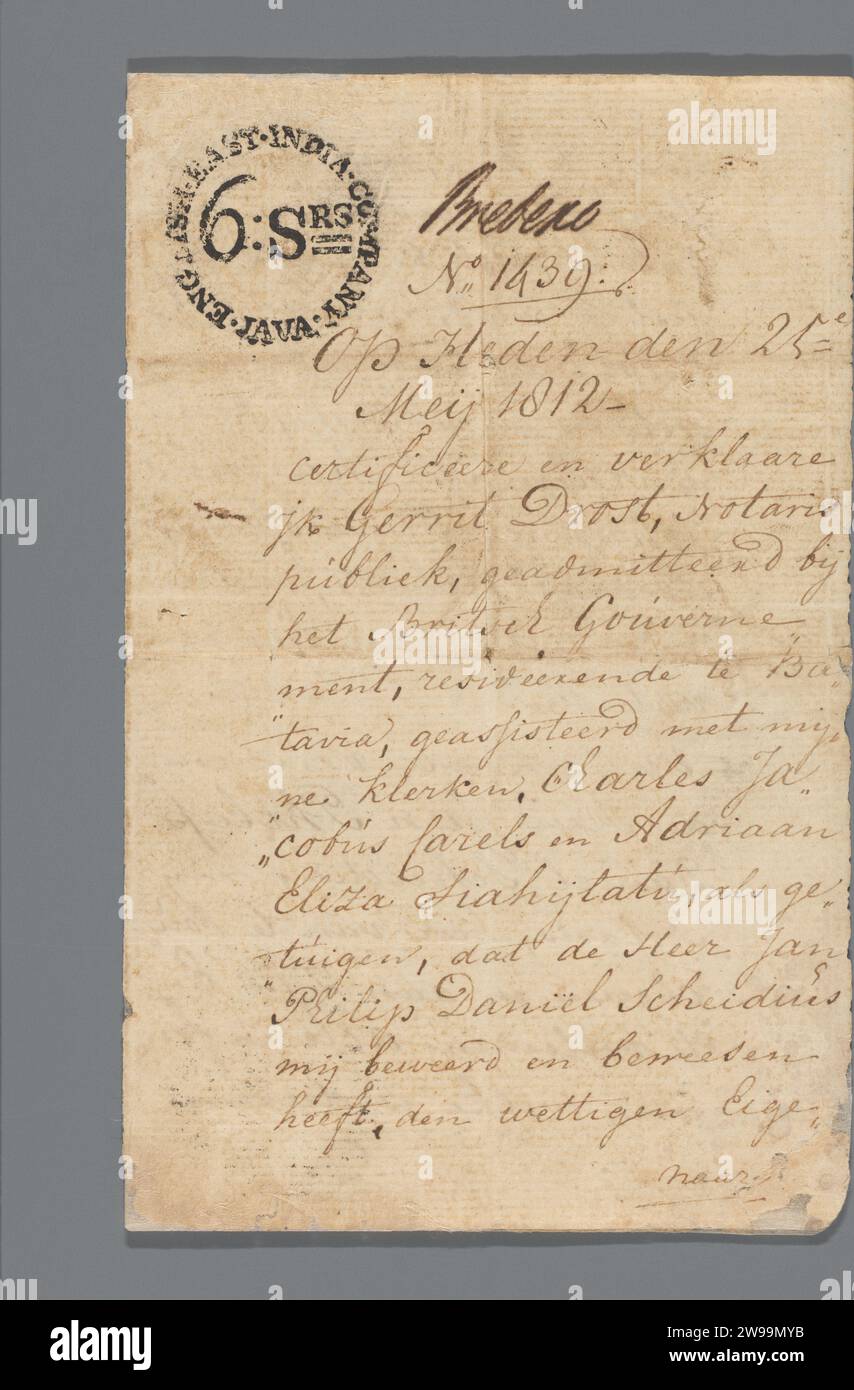 ENGLISH·EAST·INDIA·COMPANY·JAVA·
6:SRS
No. 1439:
Op Heden den 25e
Meij 1812-
certificeere en verklaare
jk Gerrit Drost, Notaris
públiek, geadmitteerd bij
het Britsch Goúverne„
„ment, resideerende te Ba„
„tavia, geassisteerd met mij„
„ne klerken, Charles Ja„
„cobús Carels en Adriaan
Eliza Siahijlatú, als ge„
„túigen, dat de Heer Jan
Philip Daniël Scheidiús
mij beweerd en beweesen
heeft, den wettigen Eige„
naar
alamy
Image ID: 2W99MYB
www.alamy.com